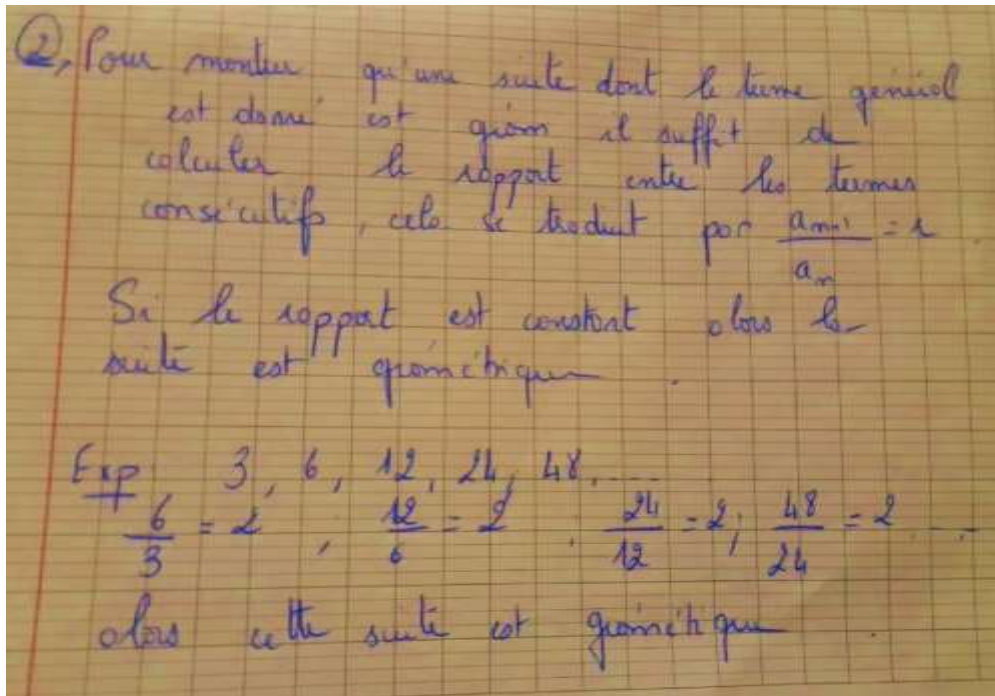 ②, Pour montrer qu'une suite dont le terme général
est donné est géom il suffit de
calculer le rapport entre les termes
consécutifs, cela se traduit par a_{n+1}/a_n = r
Si le rapport est constant alors la
suite est géométrique.
Exp, 3, 6, 12, 24, 48, ....
6/3 = 2 , 12/6 = 2 . 24/12 = 2; 48/24 = 2 ....
alors cette suite est géométrique.